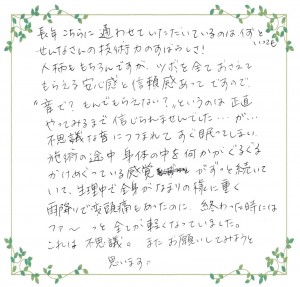 長年こちらに通わせていただいているのは何といっても
せんなさんの技術力のすばらしさ!
人柄ももちろんですが、ツボを全ておさえて
もらえる安心感と信頼感あってですので、
"音で?もんでもらえない?"というのは正直
やってみるまで信じられませんでした…が…
不思議な音につつまれてすぐ眠ってしまい、
施術の途中身体の中を何かがぐるぐる
かけめぐっている感覚がずっと続いて
いて、生理中で全身がなまりの様に重く
雨降りで変頭痛もあったのに、終わった時には
ファ〜っと全てが軽くなっていました。
これは不思議。またお願いしてみようと
思います。